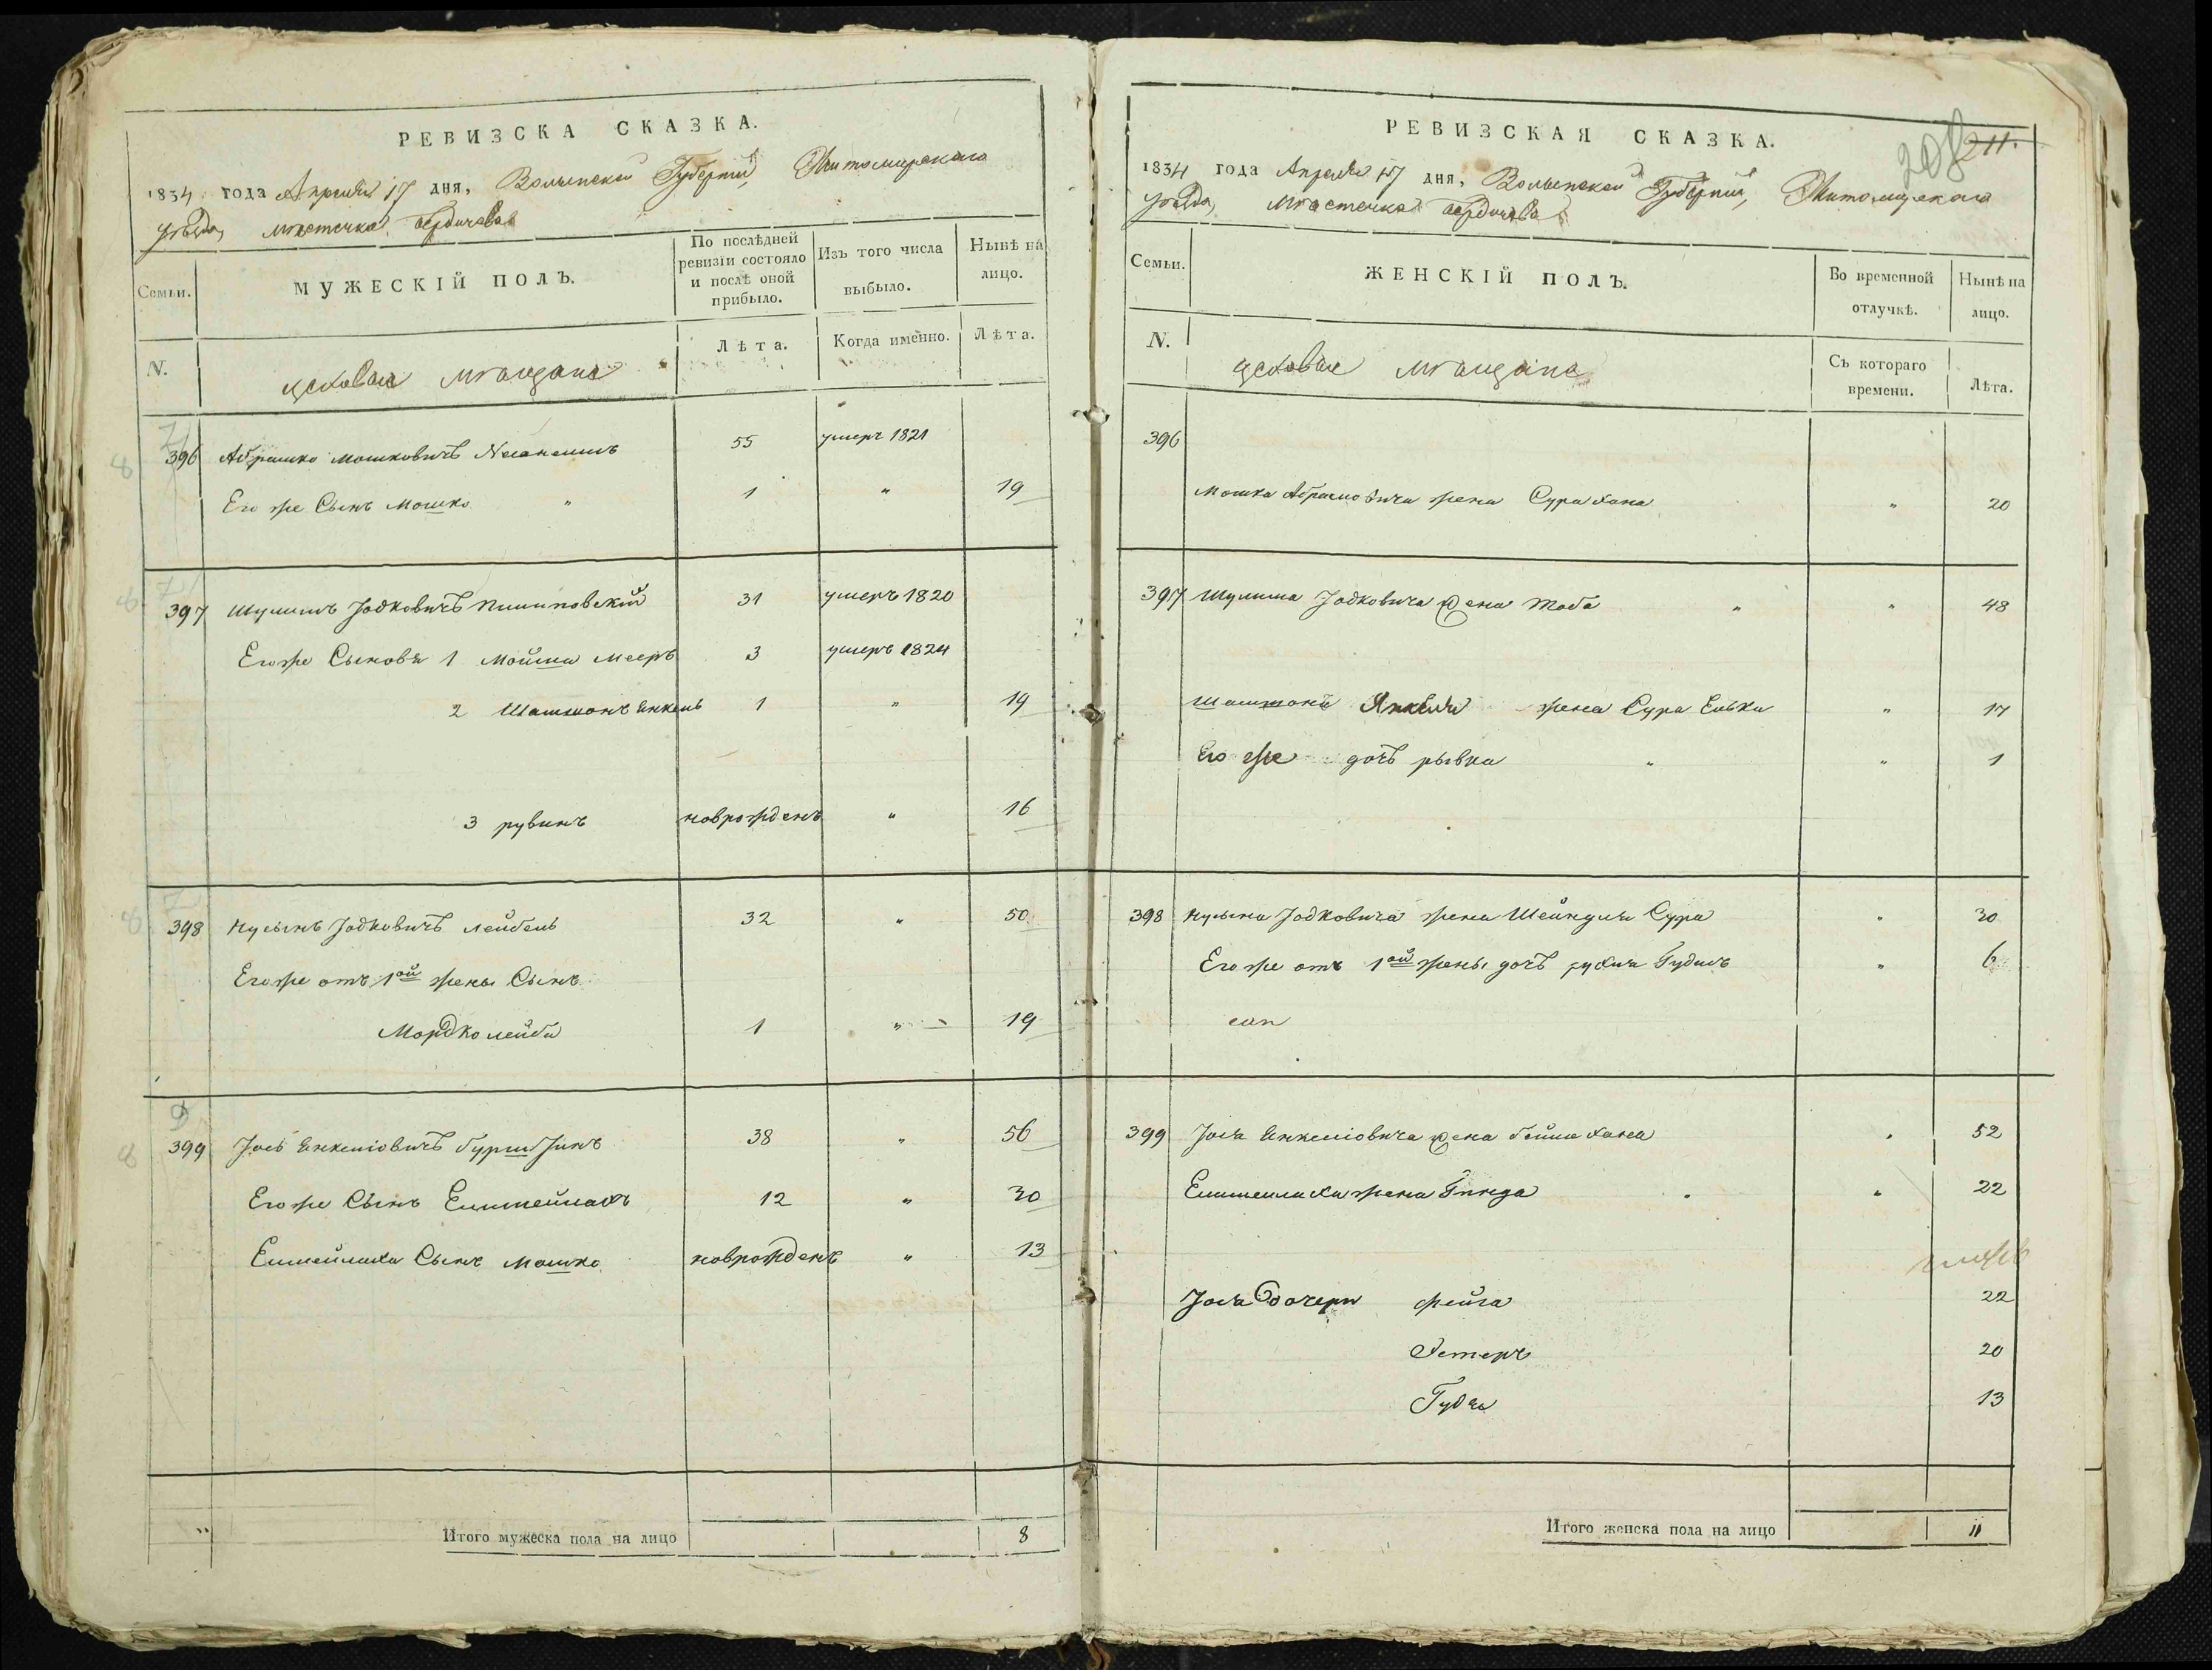 РЕВИЗСКА СКАЗКА.
1834 года Апреля 17 дня, Волынской Губернии, Житомирскаго
уѣзда, мѣстечка Бердичева
Семьи.
МУЖЕСКІЙ ПОЛЪ.
По послѣдней ревизіи состояло и послѣ оной прибыло.
Изъ того числа выбыло.
Нынѣ на лицо.
N.
цеховые мѣщане
Лѣта.
Когда именно.
Лѣта.
396 Абрамко Мошковичъ 55 умеръ 1821
Его же Сынъ Мошко " 1 " 19
397 Шулимъ Іосковичъ 31 умеръ 1820
Его же Сыновья 1 Мойше Мееръ 3 умеръ 1824
2 Шашшонъ Янкель 1 " 19
3 рувинъ новорожденъ " 16
398 Нусынъ Іосковичъ Лейбель 32 " 50
Его же отъ 1ой жены Сынъ
Мордко лейба 1 " 19
399 Іось Янкеліовичъ 38 " 56
Его же Сынъ Елимейлахъ 12 " 30
Елимейлаха Сынъ Мошко новрожденъ " 13
Итого мужеска пола на лицо 8
РЕВИЗСКАЯ СКАЗКА.
208 211.
1834 года Апреля 17 дня, Волынской Губерніи, Житомирскаго
уѣзда, Мѣстечка Бердичева
Семьи.
ЖЕНСКІЙ ПОЛЪ.
Во временной отлучкѣ.
Нынѣ на лицо.
N.
цеховые мѣщане
Съ котораго времени.
Лѣта.
396
Мошка Абрамовича жена Сура хана " 20
397 Шулима Іосковича жена Тоба " " 48
Шашшона Янкеля жена Сура Елька " 17
Его же дочь рывка " " 1
398 Нусына Іосковича жена Шейндля Сура " 30
Его же отъ 1ой жены дочь рухля Гудись " 6
сая
399 Іося Янкеліовича жена бейла хана " 52
Елимелиха жена Гинда " " 22
Іося Дочери фейга 22
Эстеръ 20
Гудя 13
Итого женска пола на лицо 11